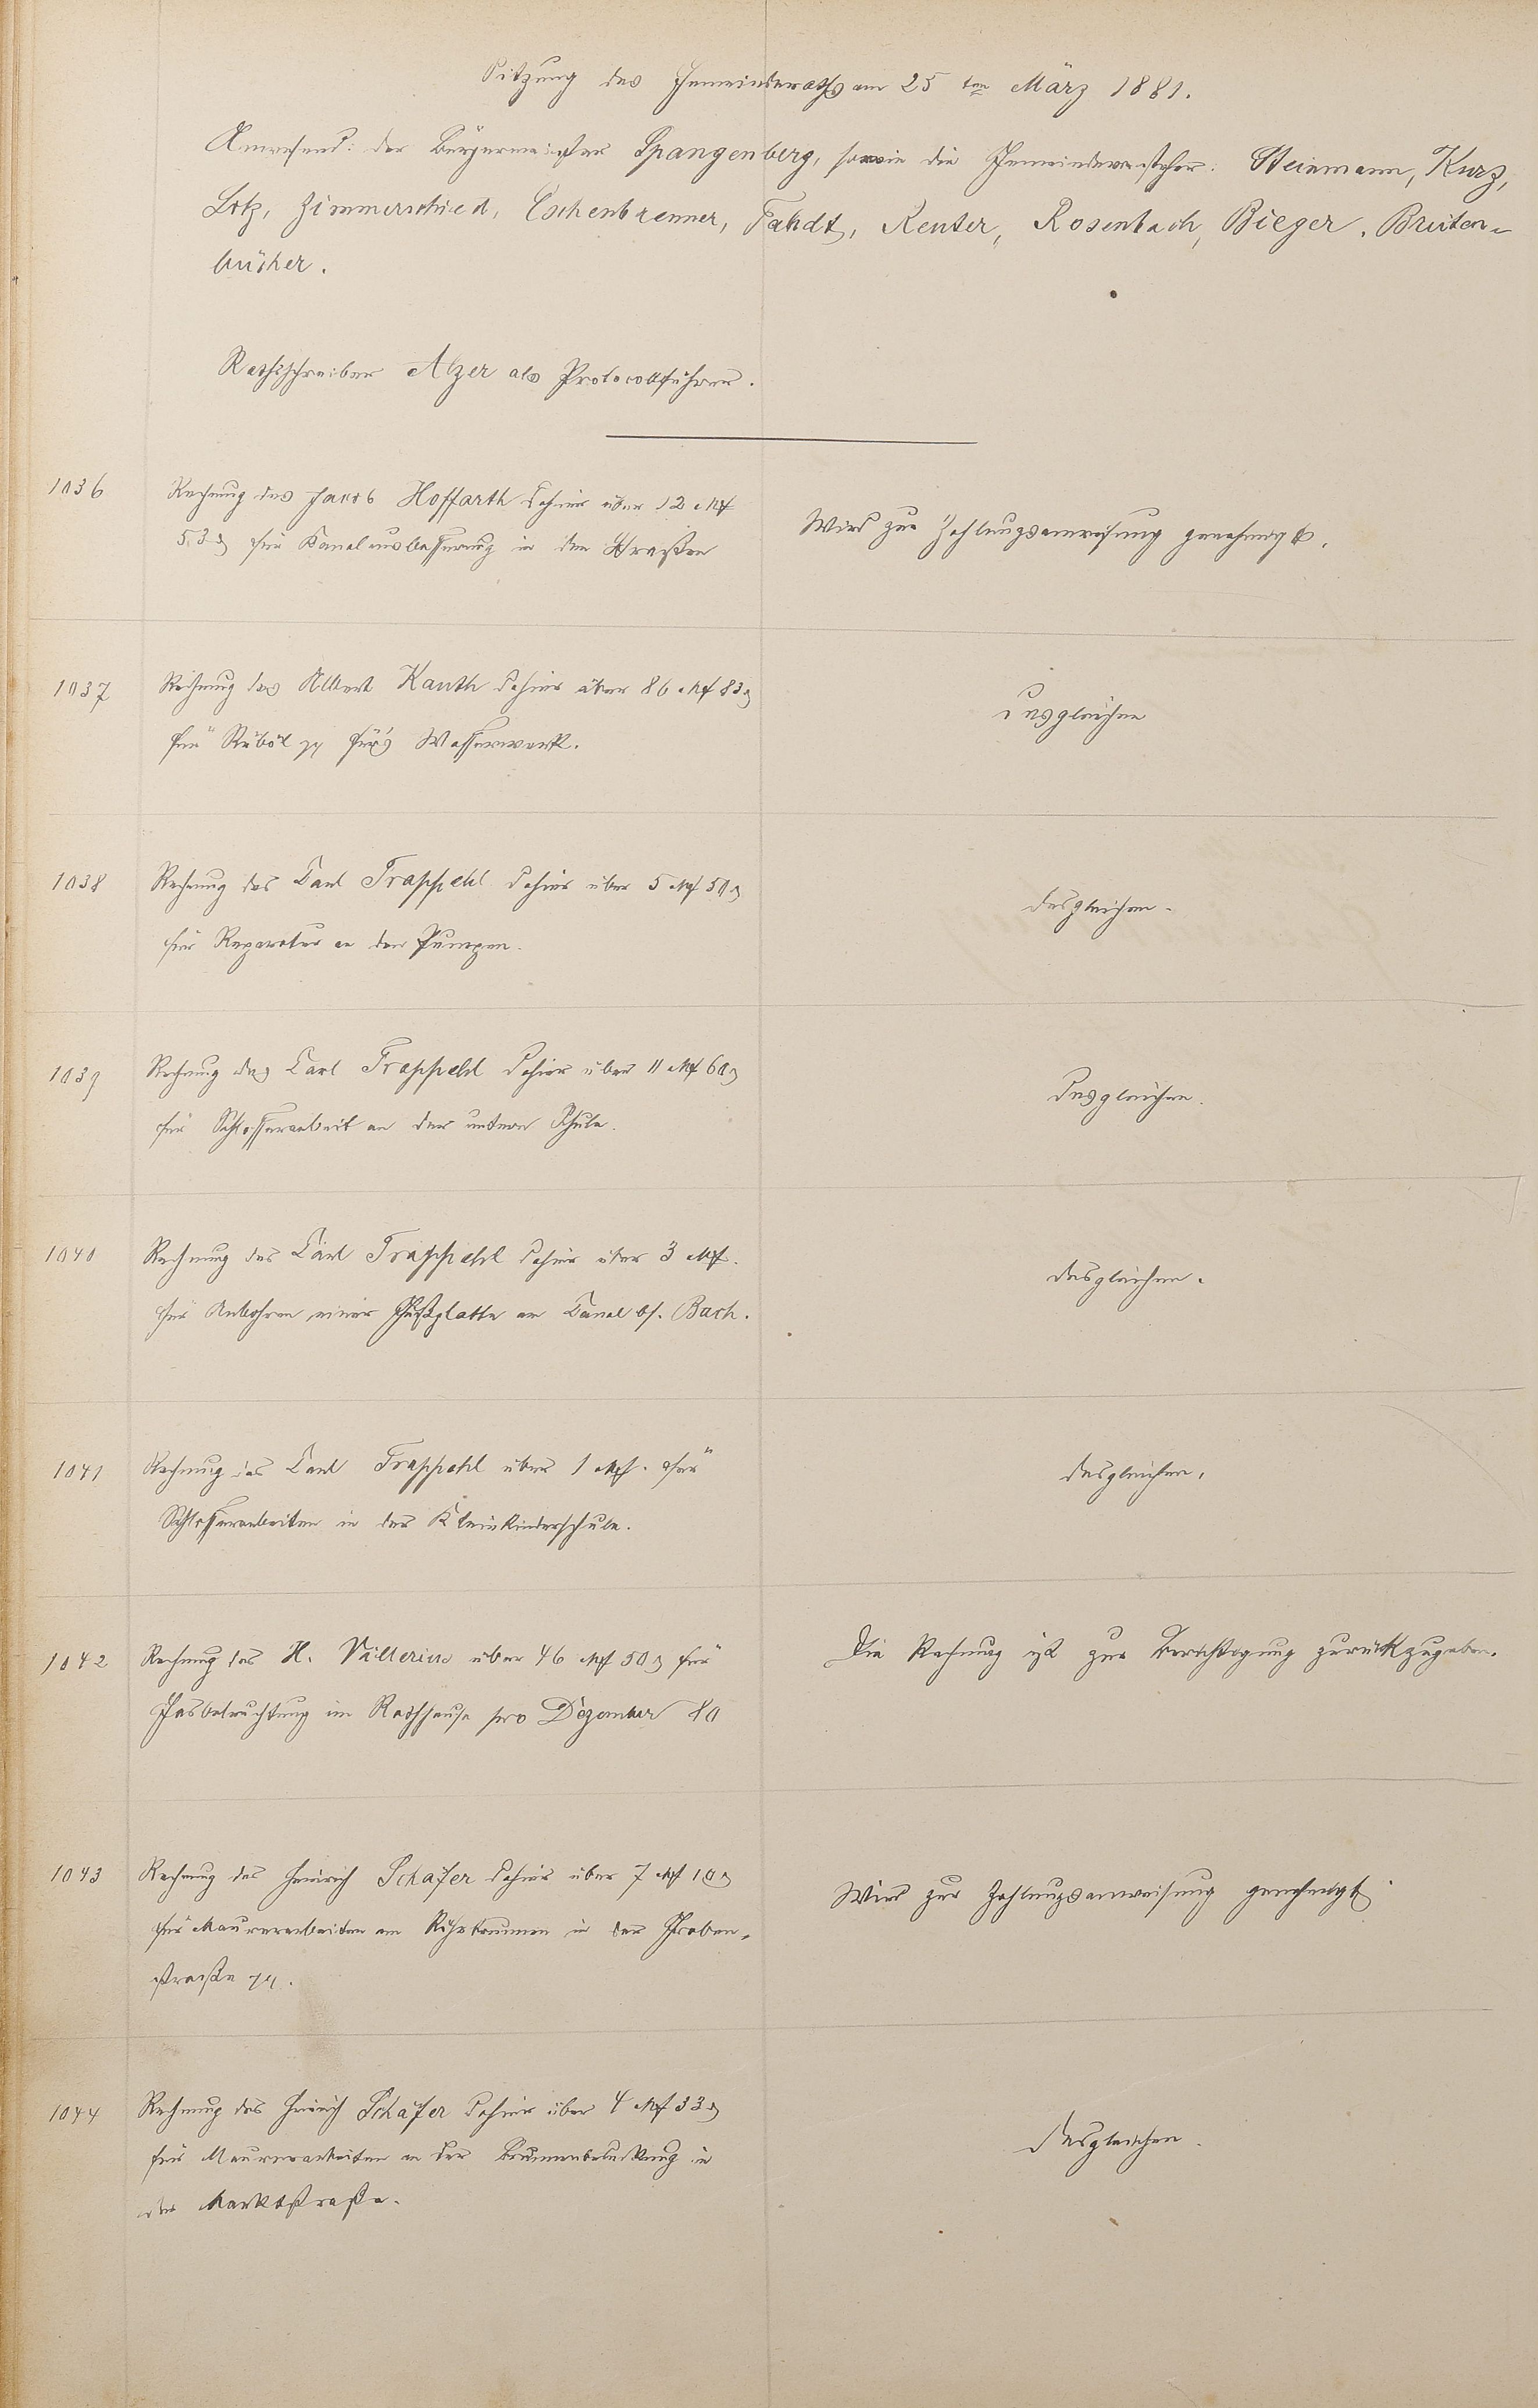 Sitzung des Gemeinderaths am 25ten März 1881.
Anwesend: der Bürgermeister Spangenberg, sowie die Gemeindevorsteher: Steinmann, Kurz,
Lotz, Zimmerschied, Eschenbrenner, Fahdt, Reuter, Rosenbach, Bieger, Breiten-
bücher.
Rathsschreiber Alzer als Protocollführer.
1036 Rechnung des Jacob Hoffarth dahier über 12 M
53 ₰ für Kanalausbesserung in den Straßen
Wird zur Zahlungsanweisung genehmigt.
1037 Rechnung des Albert Kauth dahier über 86 M 83 ₰
für Rüböl pp für's Wasserwerk.
desgleichen
1038 Rechnung des Carl Trappehl dahier über 5 M 50 ₰
für Reparatur an den Pumpen.
desgleichen.
1039 Rechnung des Carl Trappehl dahier über 11 M 60 ₰
für Schlosserarbeit an der untern Schule.
desgleichen.
1040 Rechnung des Carl Trappehl dahier über 3 M.
für Anbohren einer am Canal Bach.
desgleichen.
1041 Rechnung des Carl Trappehl über 1 M. für
Schlosserarbeiten in der Kleinkinderschule.
desgleichen.
1042 Rechnung des H. über 46 M 50 ₰ für
Gasbeleuchtung im Rathhause pro Dezember 80
Die Rechnung ist zur Berichtigung zurückzugeben.
1043 Rechnung des Heinrich Schäfer dahier über 7 M 10 ₰
für Maurerarbeiten am Röhrbrunnen in der Graben-
straße pp.
Wird zur Zahlungsanweisung genehmigt.
1044 Rechnung des Heinrich Schäfer dahier über 4 M 33 ₰
für Maurerarbeiten an der in
der Marktstraße.
desgleichen.